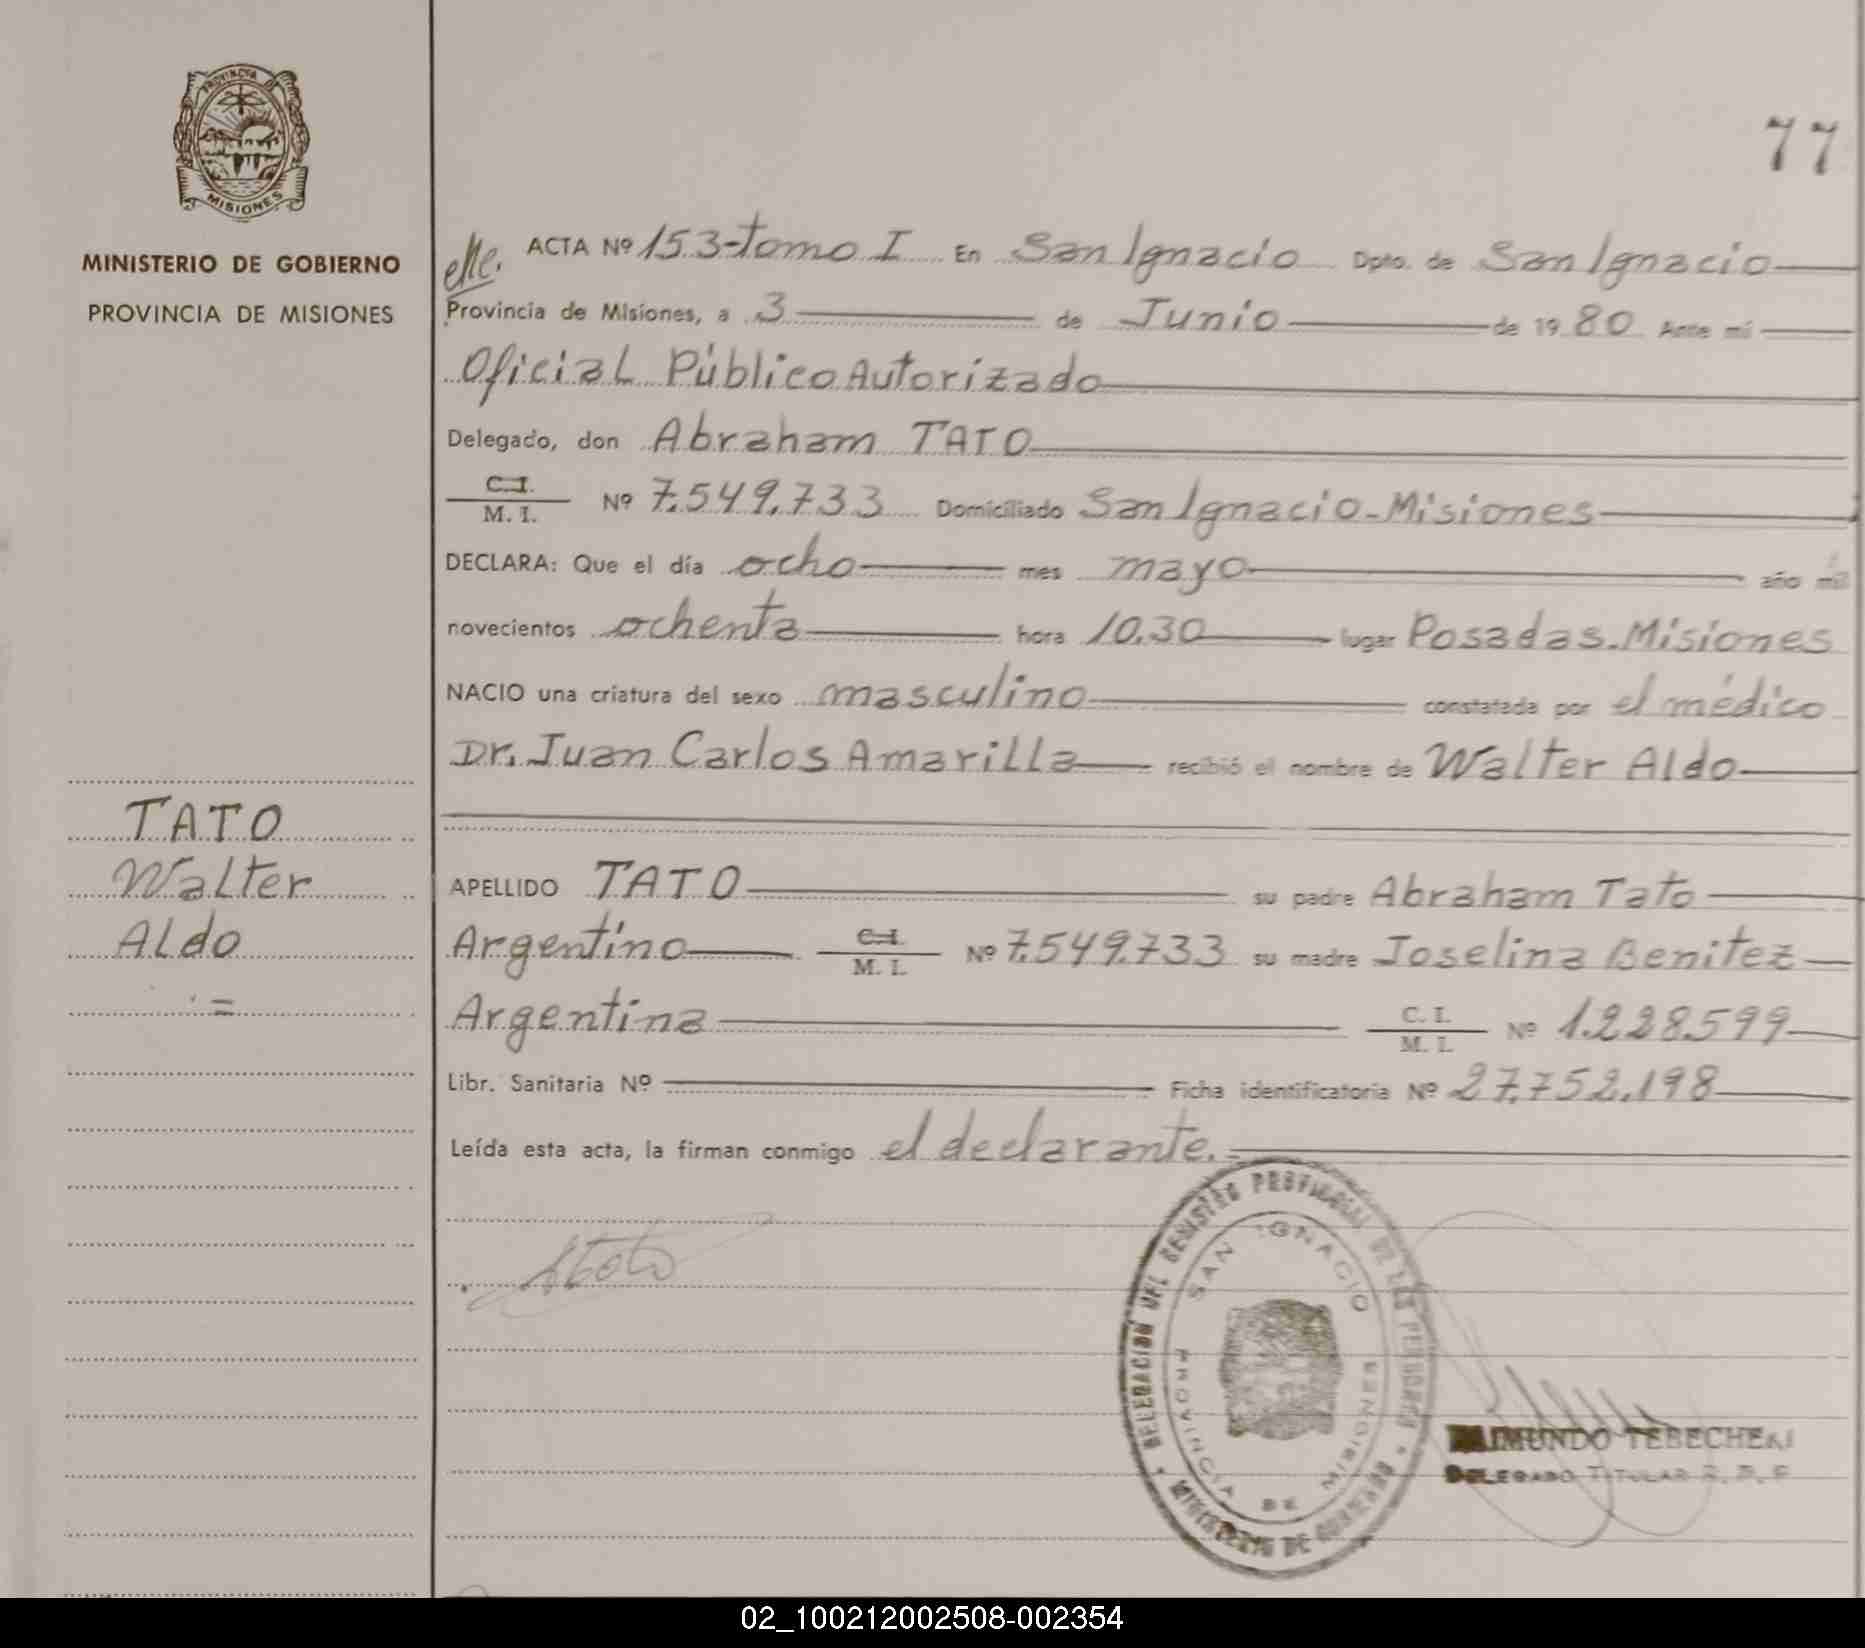 PROVINCIA
MISIONES
MINISTERIO DE GOBIERNO
PROVINCIA DE MISIONES
TATO
Walter
Aldo
=
77
ACTA Nº 153-tomo I En San Ignacio Dpto. de San Ignacio
Provincia de Misiones, a 3 de Junio de 1980 Ante mí
Oficial Público Autorizado
Delegado, don Abraham TATO
C.I.
M. I. Nº 7.549.733 Domiciliado San Ignacio-Misiones
DECLARA: Que el día ocho mes mayo año mil
novecientos ochenta hora 10,30 lugar Posadas-Misiones
NACIO una criatura del sexo masculino constatada por el médico
Dr. Juan Carlos Amarilla recibió el nombre de Walter Aldo
APELLIDO TATO su padre Abraham Tato
Argentino C.I. M. I. Nº 7.549.733 su madre Joselina Benitez
Argentina C. I. M. I. Nº 1.228.599
Libr. Sanitaria Nº Ficha identificatoria Nº 27.752.198
Leída esta acta, la firman conmigo el declarante.
DELEGACION DEL REGISTRO PROVINCIAL DE LAS PERSONAS
SAN IGNACIO
PROVINCIA DE MISIONES
MINISTERIO DE GOBIERNO
RAIMUNDO TEBECHERI
DELEGADO TITULAR R. P. P.
02_100212002508-002354